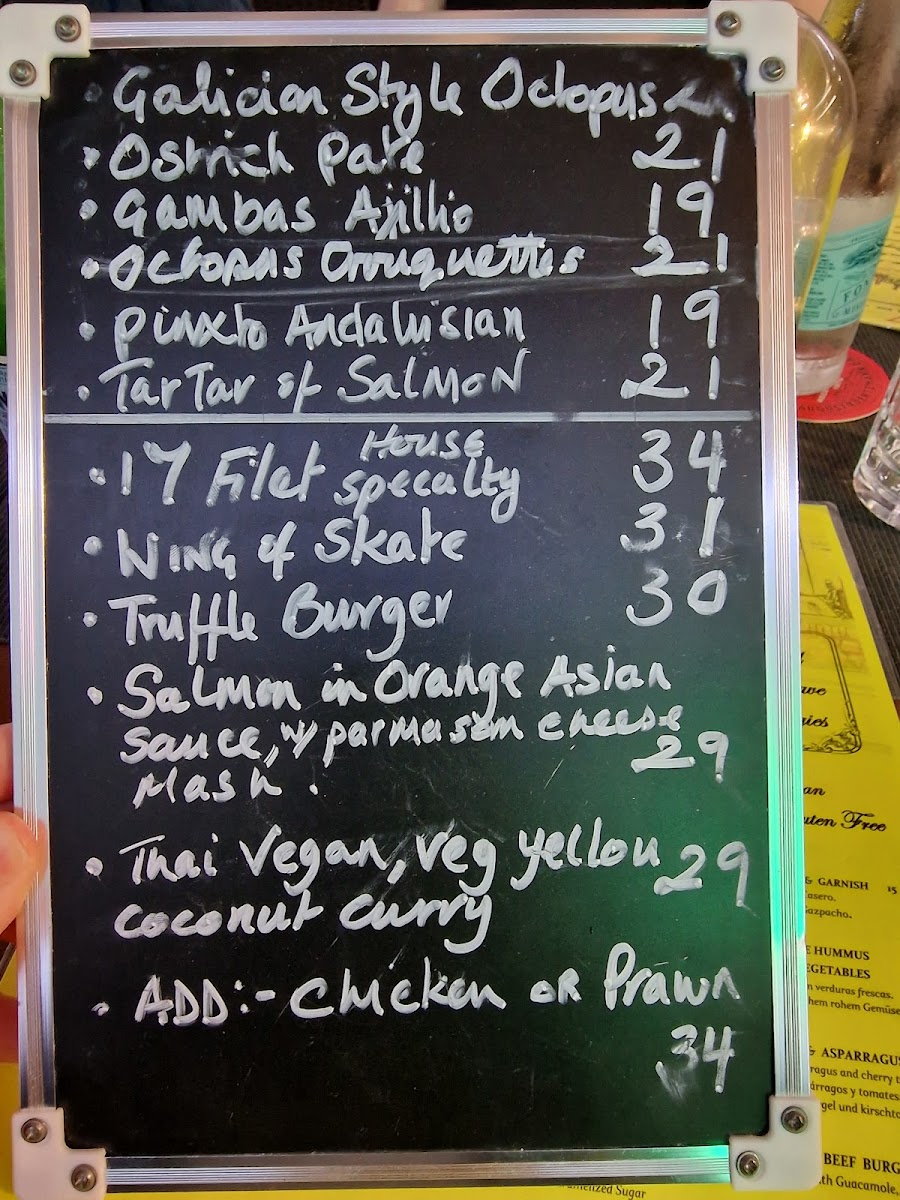 Galician Style Octopus
• Ostrich Pate 21
• Gambas Ajillio 19
• Octopus Crouquettes 21
• Pinxto Andalusian 19
• TarTar of Salmon 21
• 17 Filet House specalty 34
• Wing of Skate 31
• Truffle Burger 30
• Salmon in Orange Asian
sauce, w/ parmasem cheese
Mash . 29
• Thai Vegan, veg yellow 29
coconut curry
• ADD:- Chicken or Prawn
34
uten Free
& GARNISH 15
asero.
azpacho.
HUMMUS
EGETABLES
verduras frescas.
hem rohem Gemüse
& ASPARAGUS
ragus and cherry t
árragos y tomates
gel und kirschto
BEEF BURG
th Guacamole,
melized Sugar